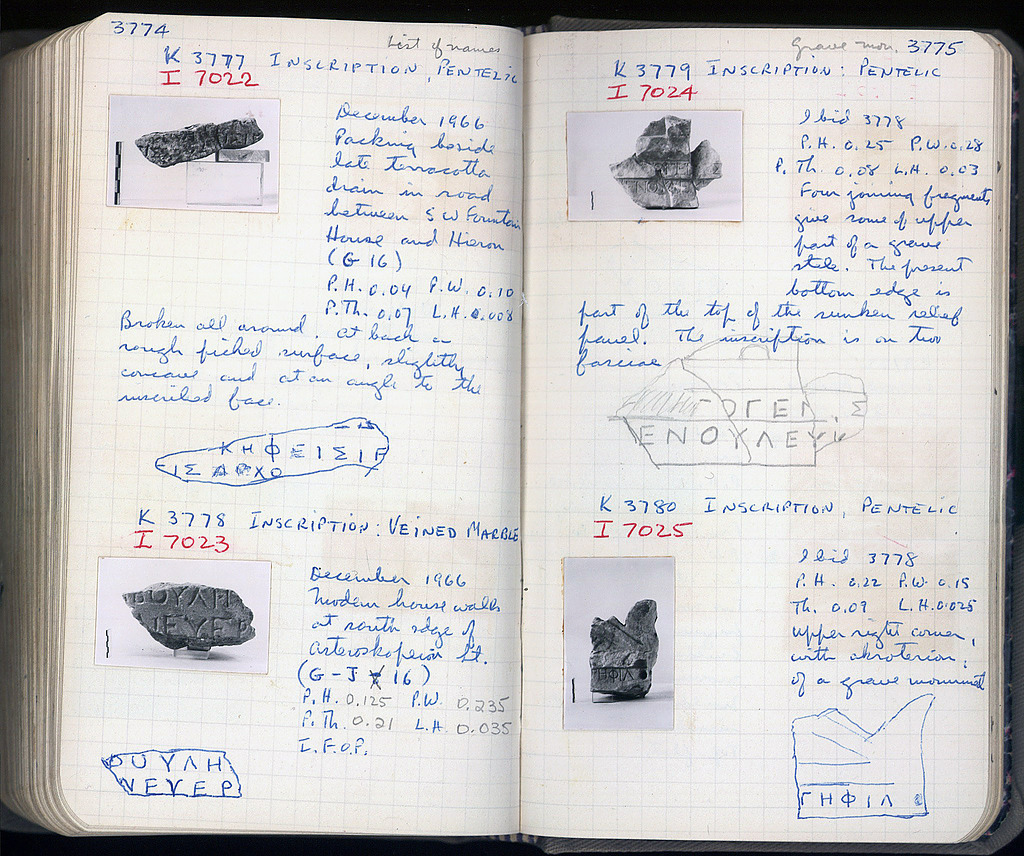 3774
List of names
K 3777 INSCRIPTION, PENTELIC
I 7022
December 1966
Packing beside
late terracotta
drain in road
between SW Fountain
House and Hieron
(G 16)
P.H. 0.04 P.W. 0.10
P.Th. 0.07 L.H. 0.008
Broken all around. At back a
rough picked surface, slightly
concave and at an angle to the
inscribed face.
ΚΗΦΕΙΣΙΕ
ΙΣ ΑΡΧΟ
K 3778 INSCRIPTION: VEINED MARBLE
I 7023
December 1966
Modern house walls
at south edge of
Asteroskopeion St.
(G-J 16)
P.H. 0.125 P.W. 0.235
P.Th. 0.21 L.H. 0.035
I.F.O.P.
ΟΥΛΗ
ΝΕΥΕΡ
Grave mon. 3775
K 3779 INSCRIPTION: PENTELIC
I 7024
Ibid 3778
P.H. 0.25 P.W. 0.28
P.Th. 0.08 L.H. 0.03
Four joining fragments
give some of upper
part of a grave
stele. The present
bottom edge is
part of the top of the sunken relief
panel. The inscription is on two
fasciae
ΟΓΕΝ Σ
ΕΝΟΥΛΕΥ
K 3780 INSCRIPTION, PENTELIC
I 7025
Ibid 3778
P.H. 0.22 P.W. 0.15
Th. 0.09 L.H. 0.025
upper right corner,
with akroterion,
of a grave monument
ΓΗΦΙΛ